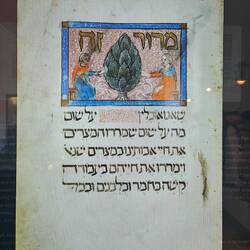 מרור זה
שאנו אכלין על שום
מה על שום שמררו המצרים
את חיי אבותינו במצרים שנא
וימררו את חייהם בעבודה
קשה בחמר ובלבנים ובכל